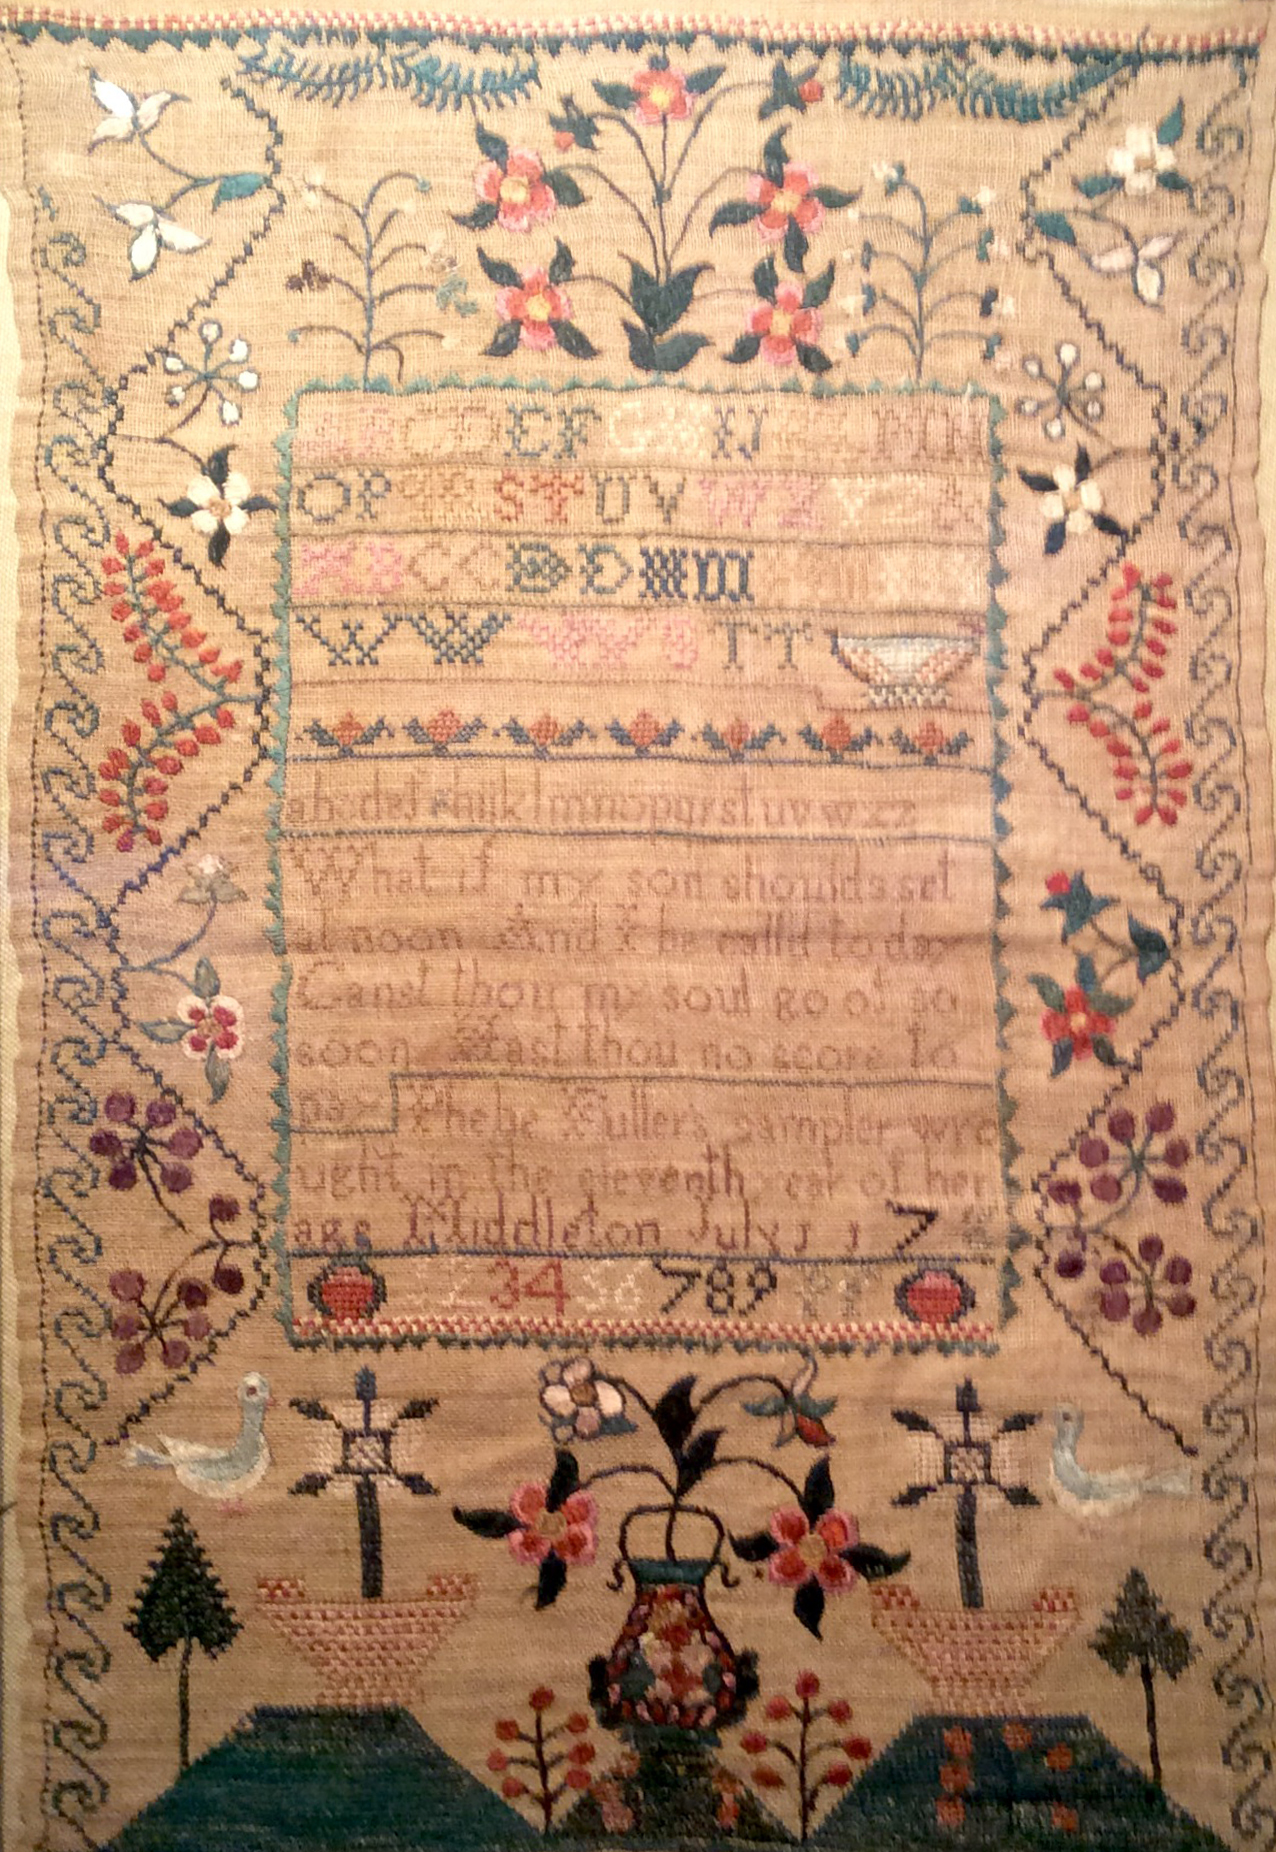 A B C D E F G H I J K L M N
O P Q R S T U V W X Y Z &
A B C C D D
W W W W T T
abcdefghijklmnopqrstuvwxz
What if my son shoulds set
at noon And I be calld to day
Canst thou my soul go of so
soon Hast thou no score to
pay Phebe Fullers sampler wro
ught in the eleventh year of her
age Middleton July 11 7
1 2 3 4 5 6 7 8 9